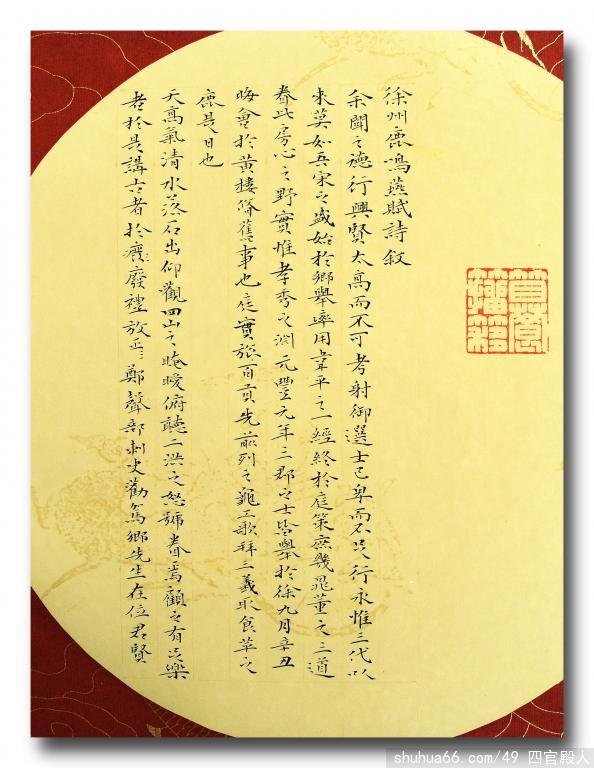 徐州鹿鳴燕賦詩叙
余聞之德行興賢太高而不可考射御選士已卑而不足行永惟三代以
來莫如吾宋之盛始於鄉舉率用韋平之一經終於庭策庶幾晁董之三道
眷此房心之野實惟孝秀之淵元豐元年三郡之士皆舉於徐九月辛丑
晦會於黃樓脩舊事也庭實旅百貢先前列之龜工歌拜三義取食苹之
鹿是日也
天高氣清水落石出仰觀四山之晻曖俯聽二洪之怒號眷焉顧之有足樂
者於是講士者於廢禮放鄭聲部刺史勸駕鄉先生在位君賢
shuhua66.com/49 四官殿人